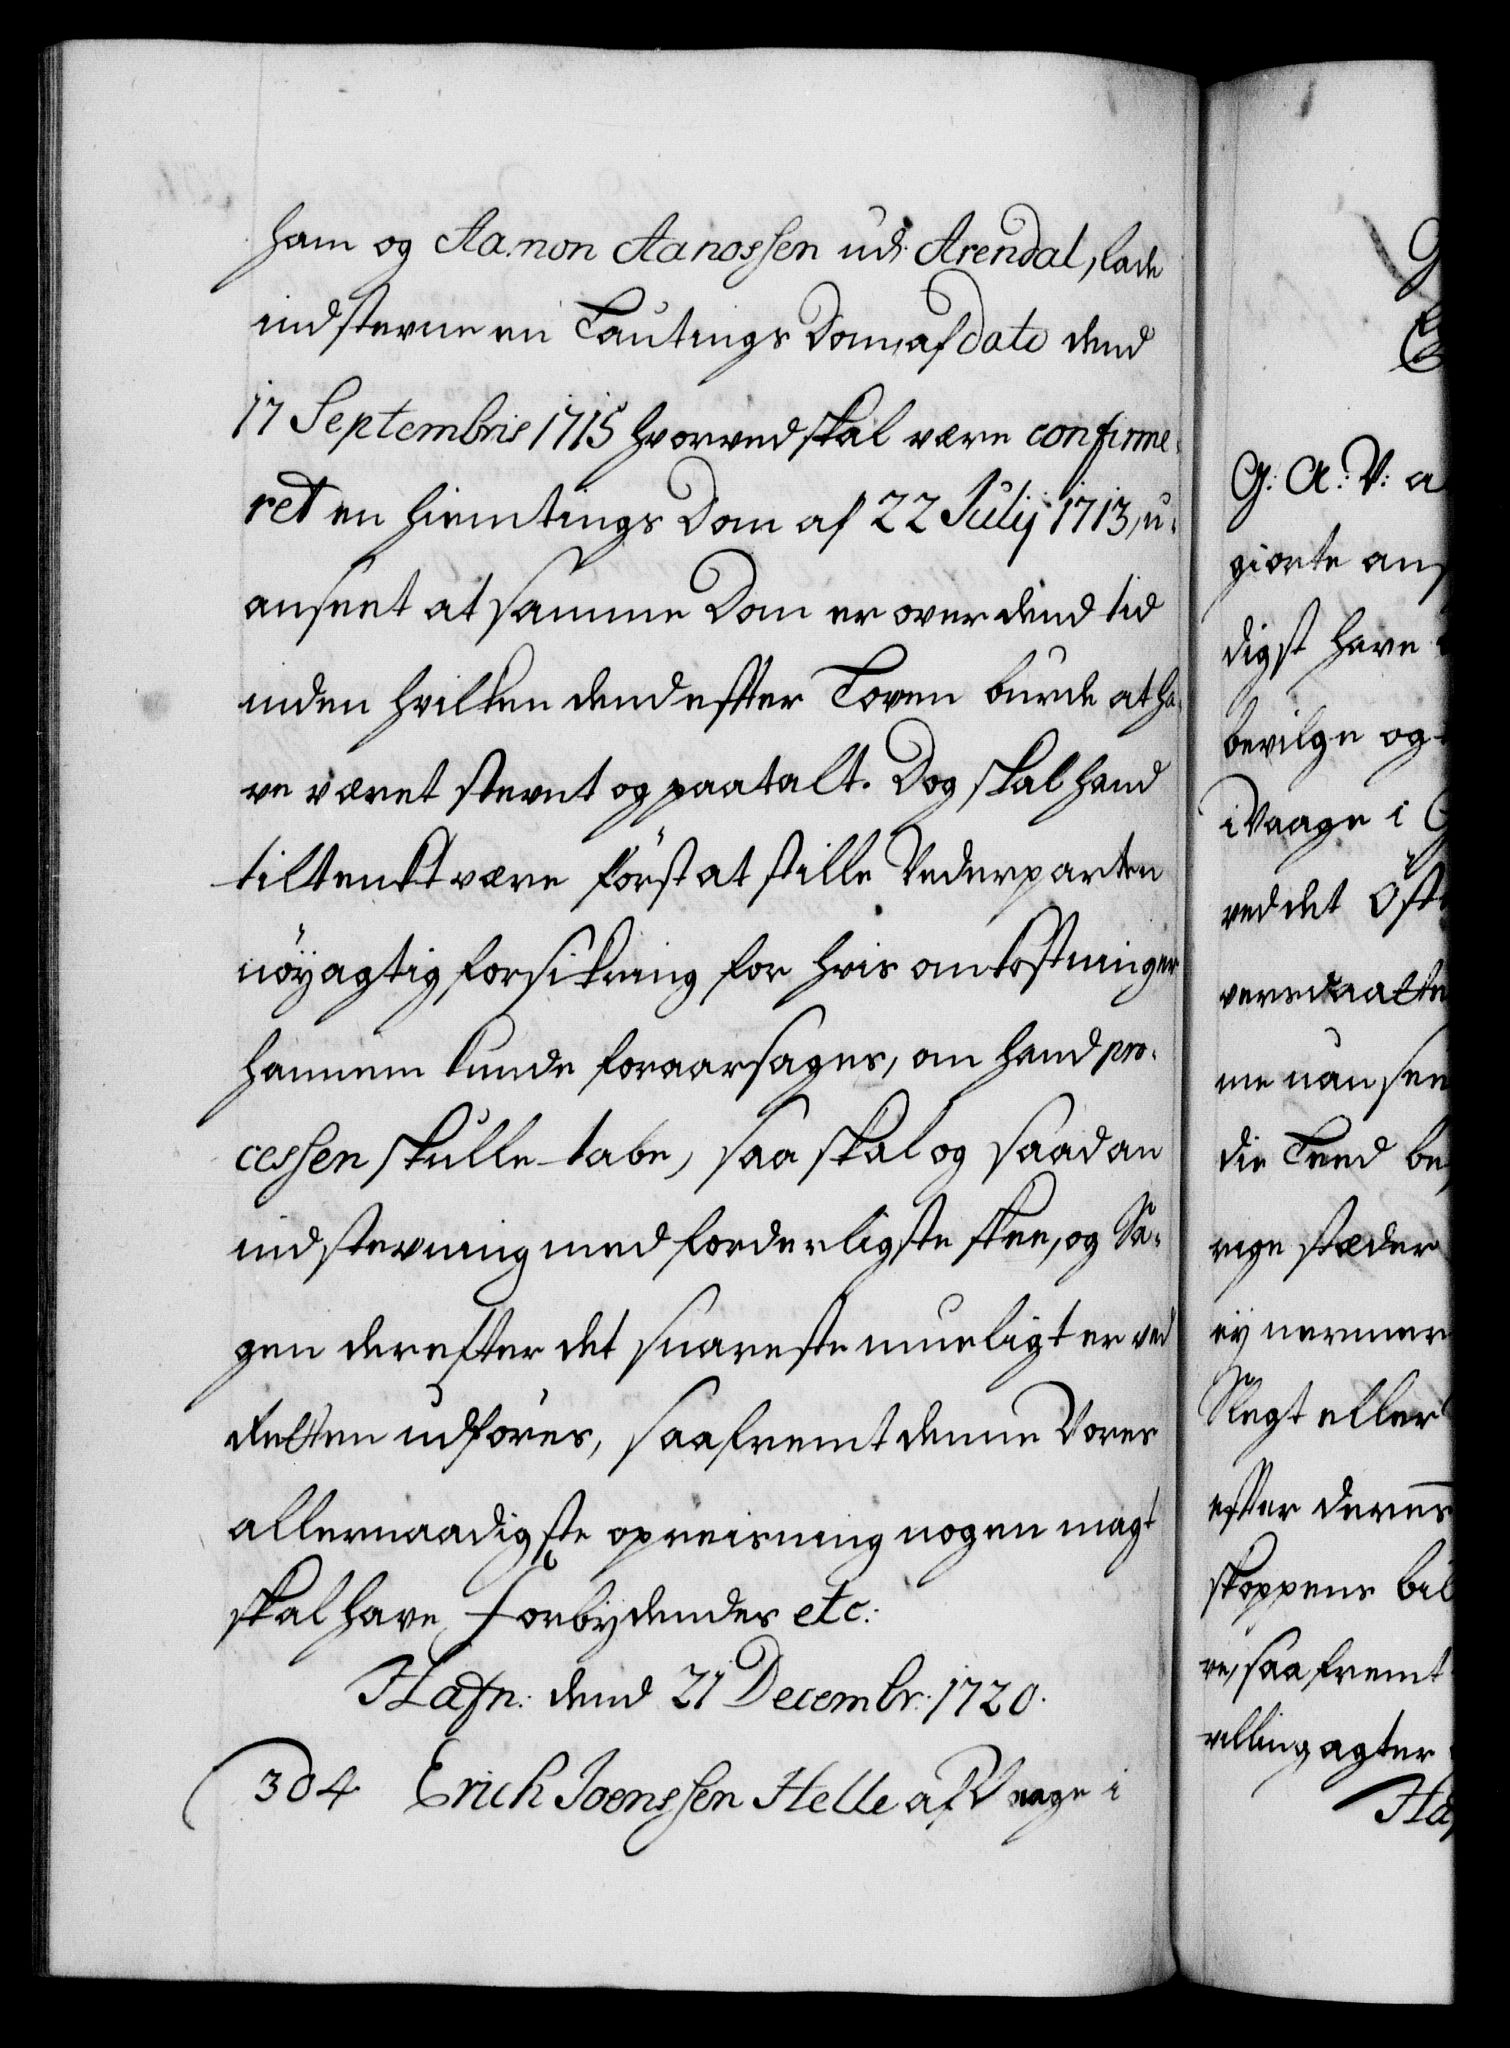 ham og Aanon Aanossen udi Arendal, lade
indstevne en Lautings Dom, af dato dend
17 Septembris 1715 hvorved skal være confirme-
ret en hiemtings Dom af 22 Julij 1713, u-
anseet at samme Dom er over dend tid
inden hvilken dend effter Loven burde at ha-
ve været stevnt og paatalt. Dog skal hand
tiltenckt være först at stille Vederparten
nöyagtig forsikring for hvis omkostninger
hannem kunde foraarsages, om hand pro-
cessen skulle tabe, saa skal og saadan
indstevning med forderligste skee, og Sa-
gen derefter det snareste mueligt er ved
Retten udföres, saafremt denne Vores
allernaadigste opreisning nogen magt
skal have, Forbydendes etc:
Hafn: dend 21 Decembr: 1720.
304. Erich Joenssen Helle af Vaage i
G: A: V: a
giorte ans
digst have
bevilge og
i Vaage i G
ved det Öst
me uanseet
die Leed be
rige stæder
ey nermer
Slegt eller
effter deres
skoppens bil
re, saa fremt
villing agter
Haf